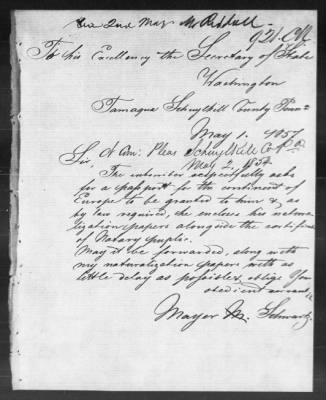 2nd May Mr Riddall
To his Excellency the Secretary of State
Washington
Tamaqua Schuylkill County Penna
May 1. 1857
Sir, Schuylkill Co Pa
May 2, 1857
The undersigned respectfully asks
for a passport for the continent of
Europe to be granted to him & as
by law required, he encloses his natura-
lization papers alongside the certificate
of Notary public.
May it be forwarded, along with
my naturalization papers with as
little delay as possible & oblige Your
obedient servant
Mayer M. Schwartz